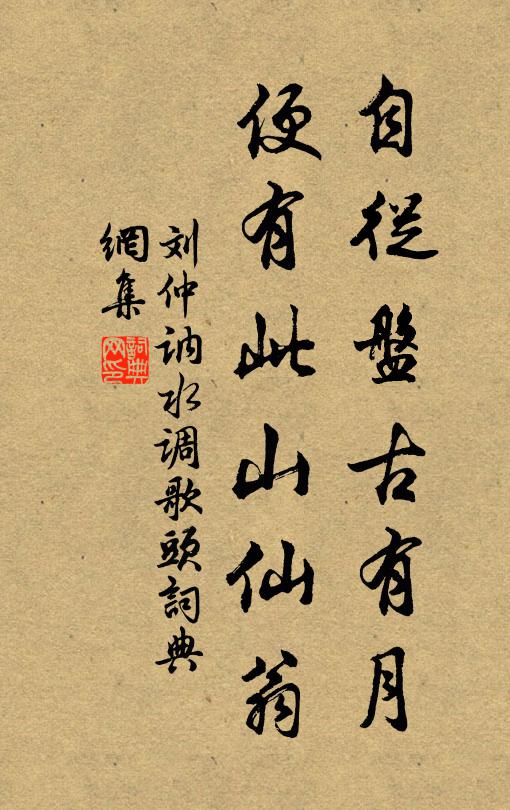 自從盤古有月
便有此山仙翁
刘仲讷水调歌頭詞典
網集
詞典
网印